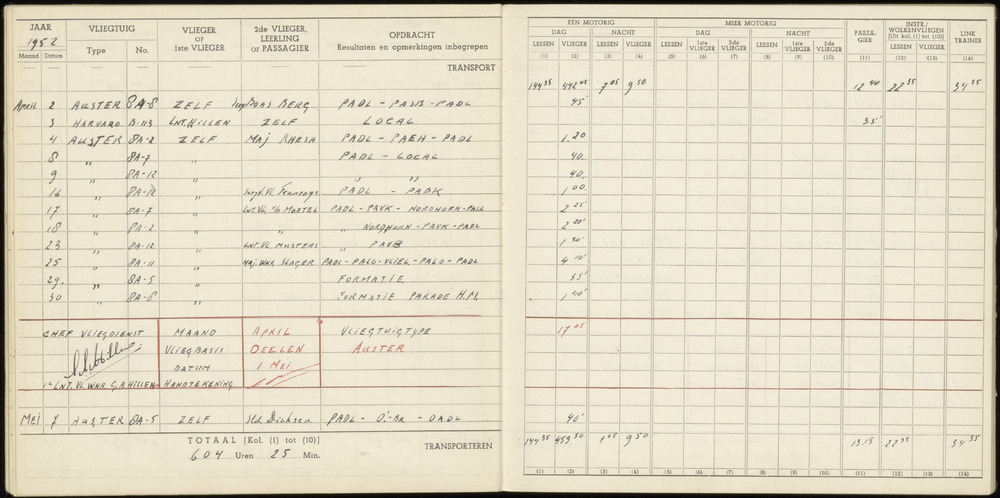 JAAR VLIEGTUIG VLIEGER OF 1ste VLIEGER 2de VLIEGER, LEERLING OF PASSAGIER OPDRACHT
1952 Type No. Resultaten en opmerkingen inbegrepen
Maand Datum
TRANSPORT
April 2 AUSTER 8A-8 ZELF BOAS BERG PADL - PASB - PADL
3 HARVARD B-113 LNT. HILLEN ZELF LOCAL
4 AUSTER 8A-2 ZELF MAJ RHESA PADL - PAEH - PADL
8 " 8A-7 " PADL - LOCAL
9 " 8A-12 " " "
16 " 8A-12 " Sergt. Vl. PADL - PABK
17 " 8A-7 " LNT. VL. v/d MORTEL PADL - PAVK - NORDHORN - PADL
18 " 8A-2 " " NORDHORN - PAVK - PADL
23 " 8A-12 " LNT. VL. MUSTERS " PAVB
25 " 8A-11 " MAJ. WNR SLAGER PADL - PALO - VLIEL - PALO - PADL
29. " 8A-5 " FORMATIE
30 " 8A-8 " FORMATIE PARADE H.M.
CHEF VLIEGDIENST MAAND APRIL VLIEGTUIGTYPE
VLIEGBASIS DEELEN AUSTER
DATUM 1 MEI
1e LNT. VL. WNR G.A. HILLEN HANDTEKENING
MEI 7 AUSTER 8A-5 ZELF Sld. PADL - - DADL
TOTAAL [Kol. (1) tot (10)] TRANSPORTEREN
604 Uren 25 Min.
EEN MOTORIG MEER MOTORIG PASSAGIER INSTR./WOLKENVLIEGEN [Uit kol. (1) tot (10)] LINK TRAINER
DAG NACHT DAG NACHT
LESSEN VLIEGER LESSEN VLIEGER LESSEN 1ste VLIEGER 2de VLIEGER LESSEN 1ste VLIEGER 2de VLIEGER LESSEN VLIEGER
(1) (2) (3) (4) (5) (6) (7) (8) (9) (10) (11) (12) (13) (14)
144 35 442 05 7 05 9 50 12 40 22 35 34 35
45'
35'
1.20
40.
40.
1 00.
2 25'
2 20'
1 30'
4 10'
35'
1 40'
17 05
40'
144 35 459 50 7 05 9 50 13.15 22 35 34 35
(1) (2) (3) (4) (5) (6) (7) (8) (9) (10) (11) (12) (13) (14)